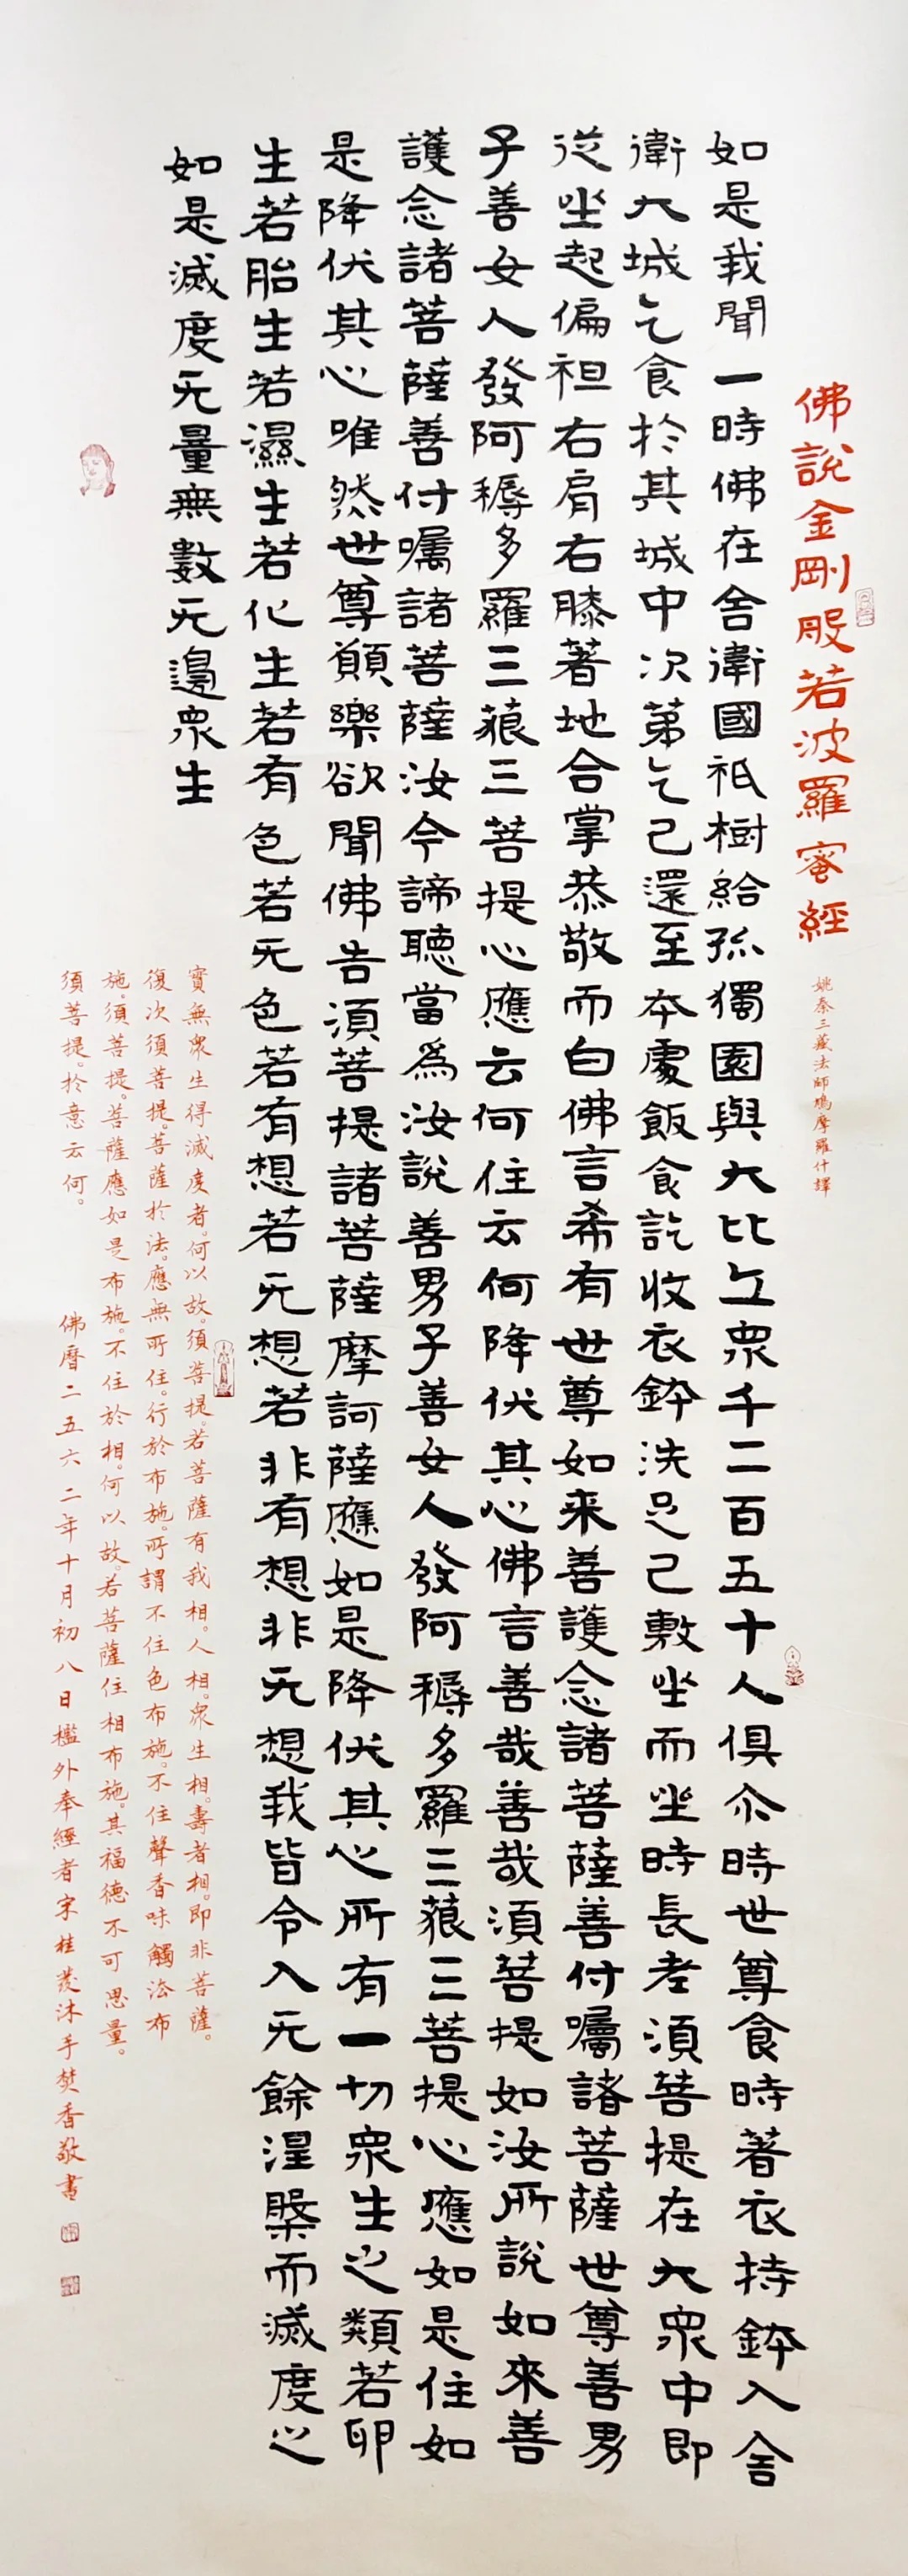 佛說金剛般若波羅蜜經
姚秦三藏法師鳩摩羅什譯
如是我聞一時佛在舍衛國祇樹給孤獨園與大比丘眾千二百五十人俱尒時世尊食時著衣持鉢入舍
衛大城乞食於其城中次第乞已還至本處飯食訖收衣鉢洗足已敷坐而坐時長老須菩提在大眾中即
從坐起偏袒右肩右膝著地合掌恭敬而白佛言希有世尊如来善護念諸菩薩善付囑諸菩薩世尊善男
子善女人發阿耨多羅三藐三菩提心應云何住云何降伏其心佛言善哉善哉須菩提如汝所說如來善
護念諸菩薩善付囑諸菩薩汝今諦聽當為汝說善男子善女人發阿耨多羅三藐三菩提心應如是住如
是降伏其心唯然世尊願樂欲聞佛告須菩提諸菩薩摩訶薩應如是降伏其心所有一切眾生之類若卵
生若胎生若濕生若化生若有色若无色若有想若无想若非有想非无想我皆令入无餘涅槃而滅度之
如是滅度无量無數无邊眾生
實無眾生得滅度者。何以故。須菩提。若菩薩有我相。人相。眾生相。壽者相。即非菩薩。
復次須菩提。菩薩於法。應無所住。行於布施。所謂不住色布施。不住聲香味觸法布
施。須菩提。菩薩應如是布施。不住於相。何以故。若菩薩住相布施。其福德不可思量。
須菩提。於意云何。 佛曆二五六二年十月初八日檻外奉經者宋桂菱沐手焚香敬書